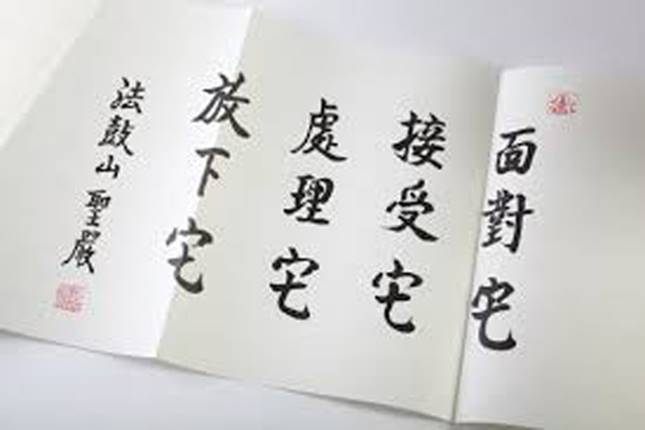 面對它
接受它
處理它
放下它
法鼓山 聖嚴